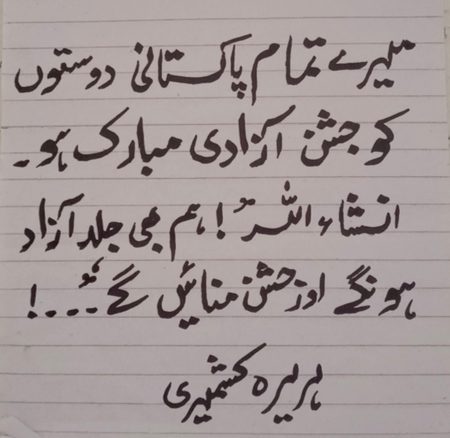 میرے تمام پاکستانی دوستوں
کو جشن آزادی مبارک ہو۔
انشاء اللہ ! ہم بھی جلد آزاد
ہونگے اور جشن منائیں گے۔۔۔!
ہریرہ کشمیری